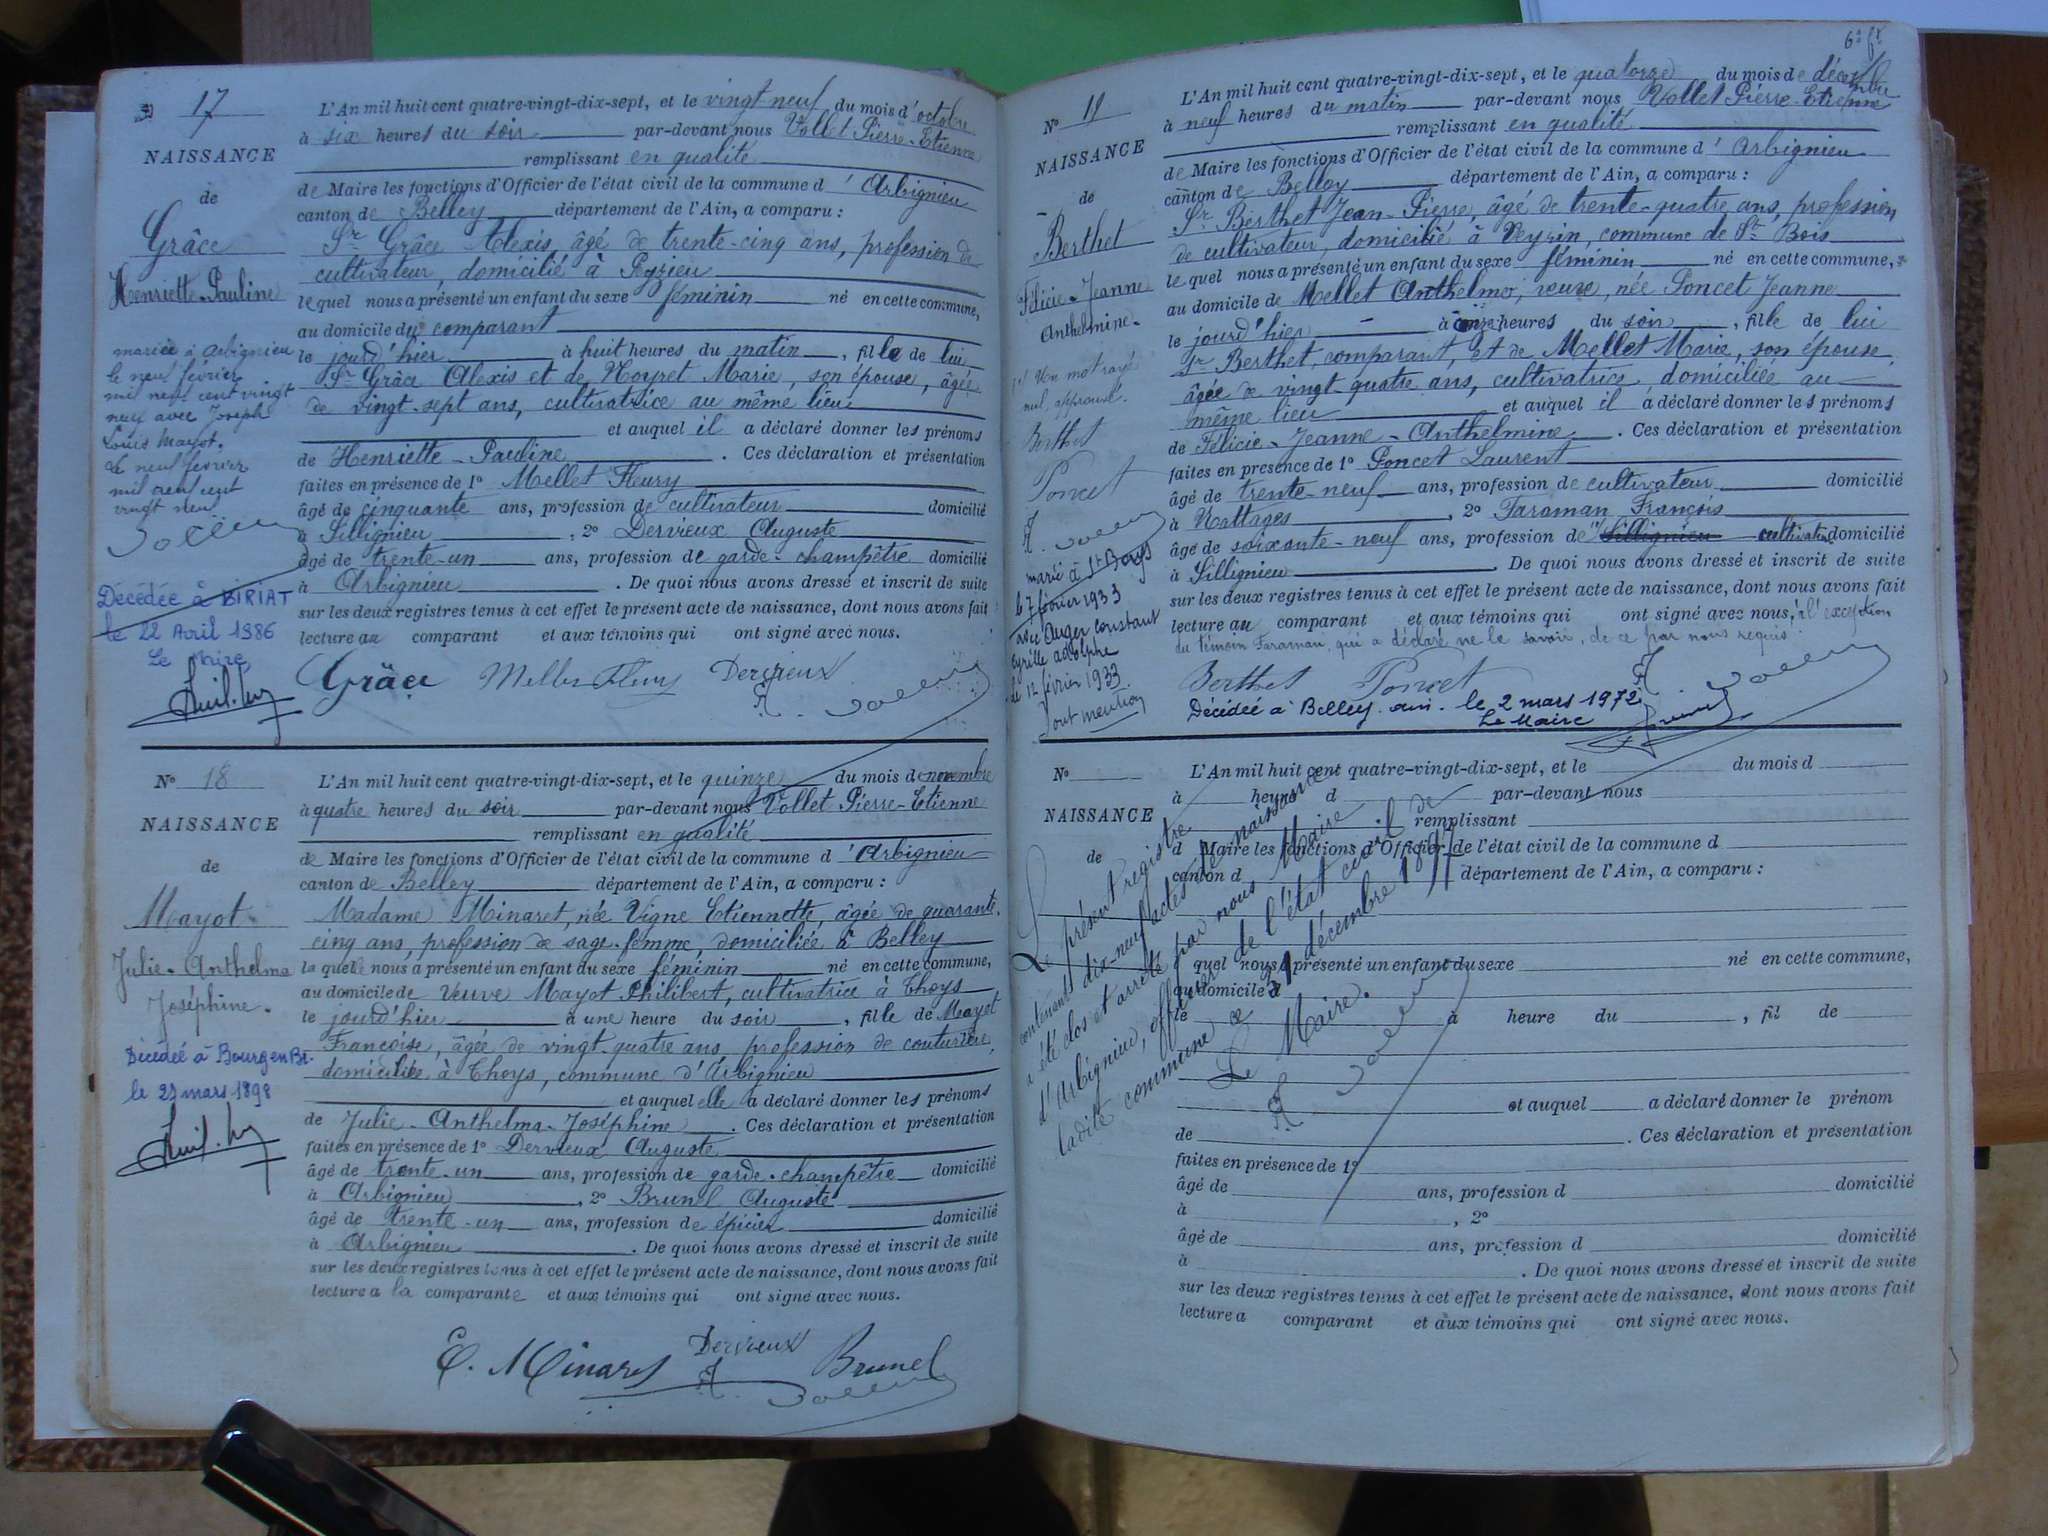 17
NAISSANCE
de
Grâce
Henriette-Pauline
mariée à Arbignieu
le neuf février
mil neuf cent vingt
neuf avec Joseph
Louis Mayot.
Le neuf février
mil neuf cent
vingt neuf
Décédée à BIRIAT
le 22 Avril 1986
Le Maire
L'An mil huit cent quatre-vingt-dix-sept, et le vingt-neuf du mois d'octobre
à six heures du soir par-devant nous Vollet Pierre-Etienne
remplissant en qualité
de Maire les fonctions d'Officier de l'état civil de la commune d'Arbignieu
canton de Belley département de l'Ain, a comparu :
Sr Grâce Alexis, âgé de trente-cinq ans, profession de
cultivateur, domicilié à Peyzieu
le quel nous a présenté un enfant du sexe féminin né en cette commune,
au domicile du comparant
le jourd'hier à huit heures du matin, fille de lui
Sr Grâce Alexis et de Noyret Marie, son épouse, âgée
de vingt-sept ans, cultivatrice au même lieu
et auquel il a déclaré donner les prénoms
de Henriette-Pauline. Ces déclaration et présentation
faites en présence de 1º Mellet Fleury
âgé de cinquante ans, profession de cultivateur domicilié
à Sillignieu, 2º Dervieux Auguste
âgé de trente-un ans, profession de garde-champêtre domicilié
à Arbignieu. De quoi nous avons dressé et inscrit de suite
sur les deux registres tenus à cet effet le présent acte de naissance, dont nous avons fait
lecture au comparant et aux témoins qui ont signé avec nous.
Grâce Mellet Fleury Dervieux
Nº 18
NAISSANCE
de
Mayot
Julie-Anthelma
Joséphine.
Décédée à Bourg en Bt.
le 29 mars 1898
L'An mil huit cent quatre-vingt-dix-sept, et le quinze du mois de novembre
à quatre heures du soir par-devant nous Vollet Pierre-Etienne
remplissant en qualité
de Maire les fonctions d'Officier de l'état civil de la commune d'Arbignieu
canton de Belley département de l'Ain, a comparu :
Madame Minaret, née Vigne Etiennette, âgée de quarante-
cinq ans, profession de sage-femme, domiciliée à Belley
la quelle nous a présenté un enfant du sexe féminin né en cette commune,
au domicile de Veuve Mayot Philibert, cultivatrice à Thoys
le jourd'hier à une heure du soir, fille de Mayot
Françoise, âgée de vingt-quatre ans, profession de couturière,
domiciliée à Thoys, commune d'Arbignieu
et auquel elle a déclaré donner les prénoms
de Julie-Anthelma-Joséphine. Ces déclaration et présentation
faites en présence de 1º Dervieux Auguste
âgé de trente-un ans, profession de garde-champêtre domicilié
à Arbignieu, 2º Brunel Auguste
âgé de trente-un ans, profession de épicier domicilié
à Arbignieu. De quoi nous avons dressé et inscrit de suite
sur les deux registres tenus à cet effet le présent acte de naissance, dont nous avons fait
lecture a la comparante et aux témoins qui ont signé avec nous.
E. Minaret Dervieux Brunel
Nº 19
NAISSANCE
de
Berthet
Félicie-Jeanne
Anthelmine.
Un mot rayé
nul, approuvé.
Berthet
Poncet
marié à St Boys
le 7 février 1933
avec Auger Constant
Cyrille Adolphe
le 12 février 1933
Dont mention
L'An mil huit cent quatre-vingt-dix-sept, et le quatorze du mois de décembre
à neuf heures du matin par-devant nous Vollet Pierre-Etienne
remplissant en qualité
de Maire les fonctions d'Officier de l'état civil de la commune d'Arbignieu
canton de Belley département de l'Ain, a comparu :
Sr Berthet Jean-Pierre, âgé de trente-quatre ans, profession
de cultivateur, domicilié à Veyrin, commune de St Bois
le quel nous a présenté un enfant du sexe féminin né en cette commune,
au domicile de Mellet Anthelme, veuve, née Poncet Jeanne
le jourd'hier à onze heures du soir, fille de lui
Sr Berthet, comparant, et de Mellet Marie, son épouse,
âgée de vingt-quatre ans, cultivatrice, domiciliée au
même lieu et auquel il a déclaré donner les prénoms
de Félicie-Jeanne-Anthelmine. Ces déclaration et présentation
faites en presence de 1º Poncet Laurent
âgé de trente-neuf ans, profession de cultivateur domicilié
à Nattages, 2º Taraman François
âgé de soixante-neuf ans, profession de Sillignieu cultivateur domicilié
à Sillignieu. De quoi nous avons dressé et inscrit de suite
sur les deux registres tenus à cet effet le présent acte de naissance, dont nous avons fait
lecture au comparant et aux témoins qui ont signé avec nous, à l'exception
du témoin Taraman, qui a déclaré ne le savoir, de ce par nous requis.
Berthet Poncet
Décédée à Belley ain. le 2 mars 1972
Le Maire
Nº
NAISSANCE
de
L'An mil huit cent quatre-vingt-dix-sept, et le du mois d
à heures d par-devant nous
remplissant
d Maire les fonctions d'Officier de l'état civil de la commune d
canton d département de l'Ain, a comparu :
quel nous a présenté un enfant du sexe né en cette commune,
au domicile d
le à heure du, fil de
et auquel a déclaré donner le prénom
de. Ces déclaration et présentation
faites en présence de 1º
âgé de ans, profession d domicilié
à, 2º
âgé de ans, profession d domicilié
à. De quoi nous avons dressé et inscrit de suite
sur les deux registres tenus à cet effet le présent acte de naissance, dont nous avons fait
lecture a comparant et aux témoins qui ont signé avec nous.
Le présent registre
contenant dix-neuf actes de naissance
a été clos et arrêté par nous Maire de
d'Arbignieu, officier de l'état civil de
ladite commune ce 31 décembre 1897
Le Maire.